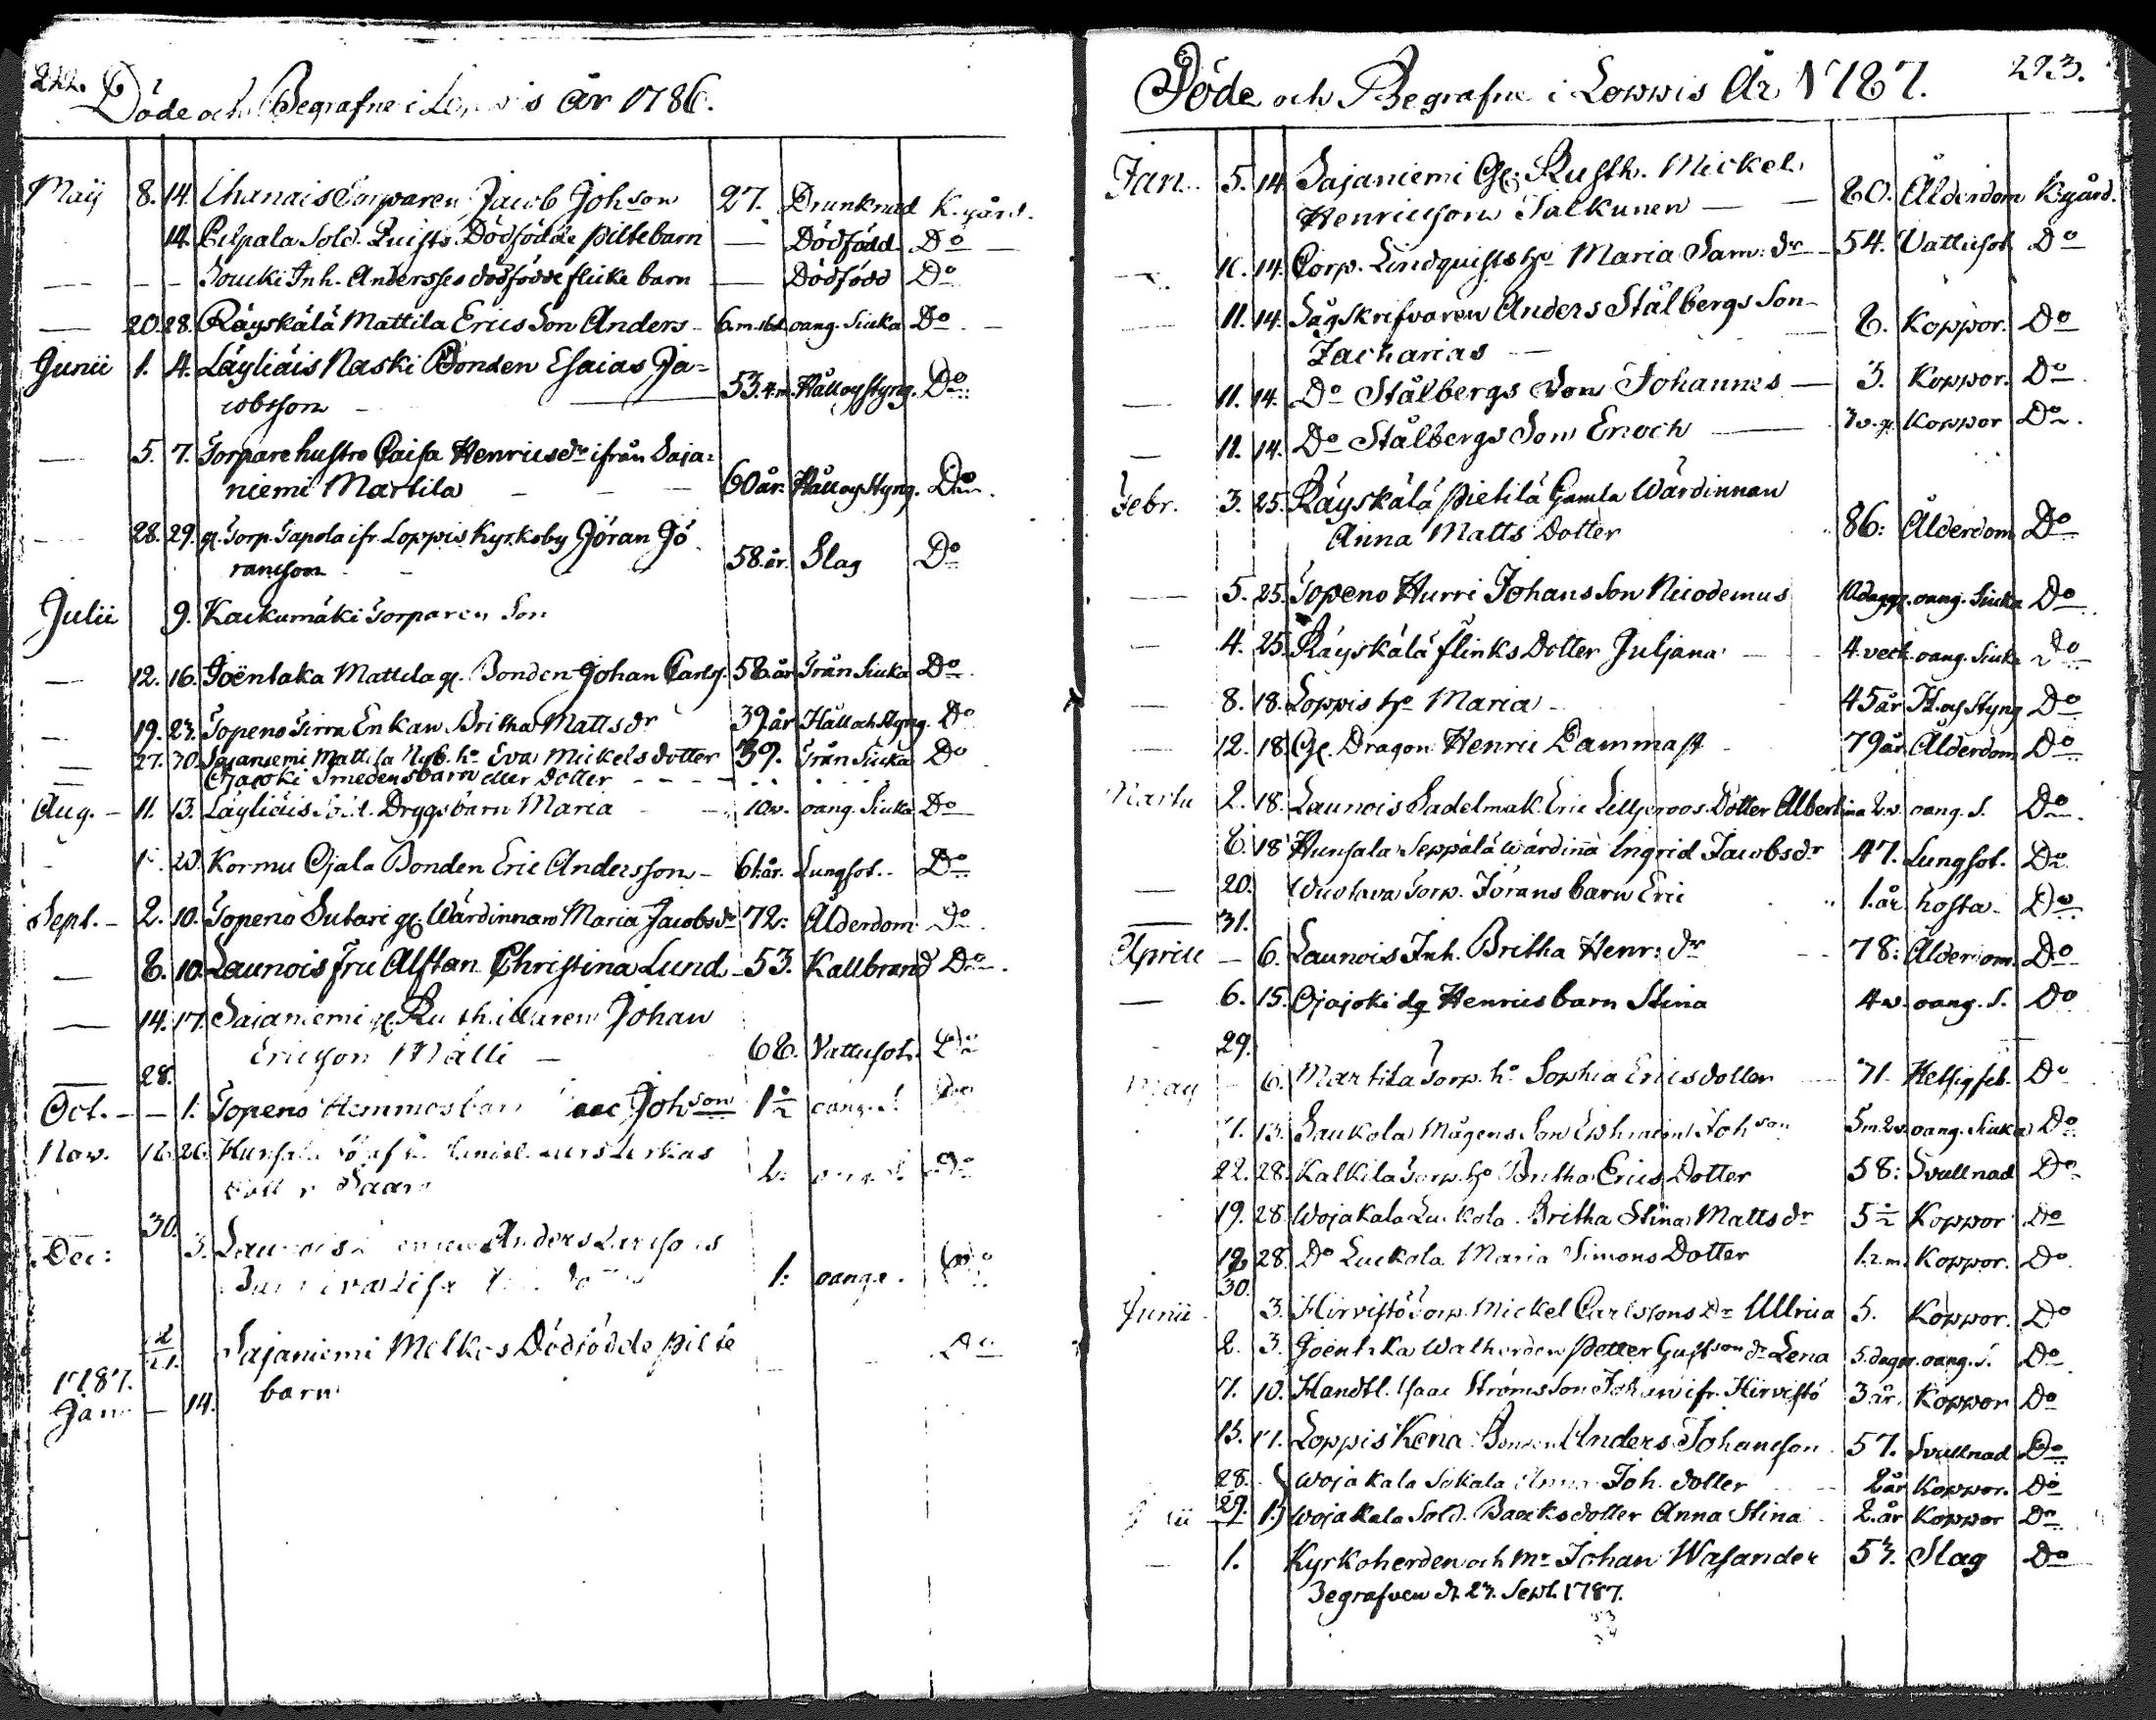 222.
Döde och Begrafne i Loppis år 1786.
Maij 8. 14. Torparen Jacob Johson 27. Drunknad K.gård.
14. Pilpala Sold. Quists Dödfödde piltebarn — Dödfödd Do
— — — Soucki Inh. Anderssos dödfödde flicke barn — Dödfödd Do
— 20. 28. Räyskälä Mattila Erics Son Anders oang. Siuka Do
Junii 1. 4. Läyliäis Naski Bonden Esaias Ja=
cobsson — 53. 4.m. Håll och styng. Do
— 5. 7. Torpare hustro Caisa Henricsdr ifrån Saja=
niemi Martila — 60 år. Håll och styng. Do
— 28. 29. gl. Torp. Tapola ifr. Loppis Kyrkoby Jöran Jö
ransson 58. år. Slag Do
Julii 9. Kaukumäki Torparen Son
— 12. 16. Joëntaka Mattila gl. Bonden Johan Carls. 58. år Trånsiuka Do
— 19. 23. Topeno Tirra Enkan Britha Matts dr 39. år Håll och styng. Do
— 27. 30. Sajaniemi Mattila Nyb. ho Eva Mickels dotter 39. Trånsiuka Do
Ojajoki Smedens barn eller dotter - - - -
Aug. - 11. 13. Läyliäis Sold. Dryggs barn Maria 10v. oang. Siuka Do
20. Kormu Ojala Bonden Eric Andersson - 61. år. Lungsot. Do
Sept. - 2. 10. Topeno Sutari gl. Wärdinnan Maria Jacobsdr 72: Ålderdom Do
— 8. 10. Launois Fru Alftan Christina Lund - 53. Kallbrand Do
— 14. 17. Sajaniemi gl. Rusthållaren Johan
Ericsson Mälli — 68. Vattusot. Do
— 28.
Oct. - — 1. Topeno Hemmos barn Johson 1 1/2 oang. S. Do
Nov. 16. 26. Hunsala
Saara 2. Do
— 30.
Dec: 3. Anders Larssons
1: oang. Do
21. Sajaniemi Melkos Dödfödde pilte Do
1787.
Jan. — 14. barn
223.
Döde och Begrafne i Loppis År 1787.
Jan. 5. 14. Sajaniemi Gl. Rusth. Mickel
Henricsson Talkunen — — 80. Ålderdom K.gård.
— 11. 14. Corp. Lindquists ho Maria Sam: dr 54. Vattusot Do
11. 14. Sågskrifvaren Anders Stålbergs Son
Zacharias — 8. Koppor. Do
— 11. 14. Do Stålbergs Son Johannes — 3. Koppor. Do
— 11. 14. Do Stålbergs Son Enoch — Koppor Do
Febr. 3. 25. Räyskälä Pietilä Gamla Wärdinnan
Anna Matts Dotter 86: Ålderdom Do
— 5. 25. Topeno Hurri Johans Son Nicodemus 10. dagar. oang. Siuka Do
— 4. 25. Räyskälä Flinks Dotter Juljana 4. veck. oang. Siuka Do
8. 18. Loppis ho Maria 45 år H. och styng Do
— 12. 18. Gl. Dragon Henric Dammast 79 år Ålderdom Do
Martii 2. 18. Launois Sadelmak. Eric Liljeroos Dotter Albertina 2.v. oang. S. Do
8. 18 Hunsala Seppälä wärdina Ingrid Jacobsdr 47. Lungsot. Do
— 20. Torp. Jörans barn Eric 1. år hosta. Do
— 31.
Aprill — 6. Launois Inh. Britha Henr: dr 78: Ålderdom. Do
— 6. 15. Ojajoki dg Henrics barn Stina 4 v. oang. S. Do
29.
May — 6. Martila Torp. ho Sophia Erics dotter 71. Hetsig feb. Do
7. 13. Saukola Mågens Son Ephraim Johson 5 m. 2 v. oang. Siuka Do
22. 28. Kalkila Torp. ho Britha Erics Dotter 58: Svullnad Do
19. 28. Wojakala Luckola Britha Stina Matts dr 5 1/2 Koppor Do
19. 28. Do Luckola Maria Simons Dotter 1. 2. m. Koppor. Do
30.
Junii 3. Hirvistö Torp. Mickel Carlssons Dr Ullrica 5. Koppor. Do
2. 3. Joentaka Petter Gustson dr Lena 5. dagar. oang. S. Do
7. 10. Handtl. Isaac Ströms Son Johan ifr. Hirvistö 3 år. Koppor Do
13. 17. Loppis Kena Bonden Anders Johansson 57. Svullnad Do
28. Wojakala Sokala Anna Joh. dotter 2 år Koppor. Do
29. 1. Wojakala Sold. Baacks dotter Anna Stina 2. år Koppor Do
— 1. Kyrkoherden och Mr Johan Wasander Slag Do
Begrafven d. 23. Sept. 1787.